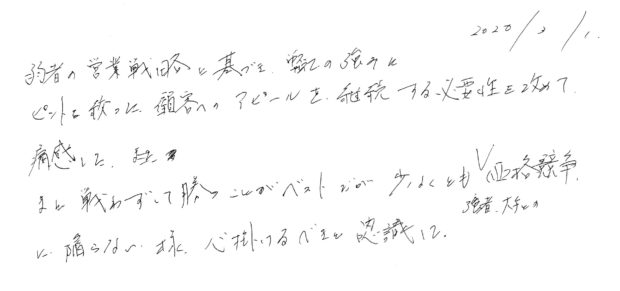 2020/2/1.
弱者の営業戦略に基づき、弊社の強みに
ピントを絞った顧客へのアピールを、継続する必要性を改めて
痛感した。また
まに戦わずして勝つことがベストだが 少なくとも 価格競争、
強者、大手との
に陥らない様、心掛けるべきと認識した。